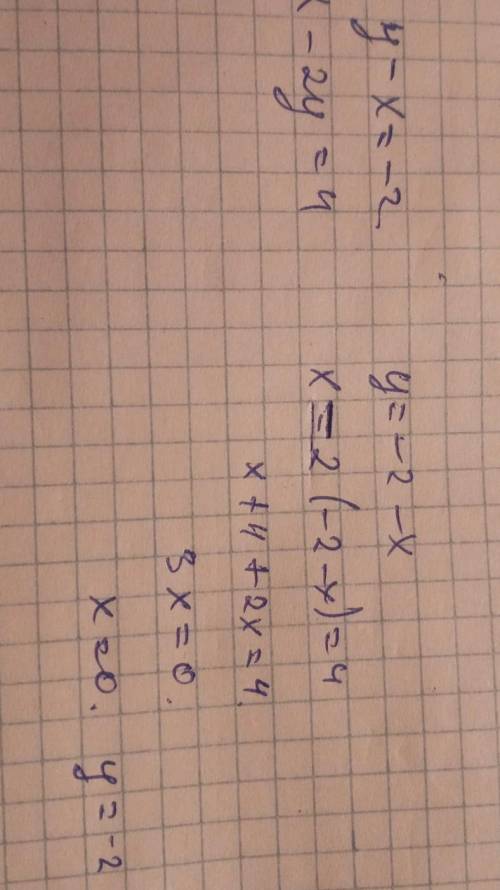 y - x = -2
x - 2y = 4
y = -2 - x
x = 2 (-2 - x) = 4
x + 4 + 2x = 4.
3x = 0.
x = 0. y = -2